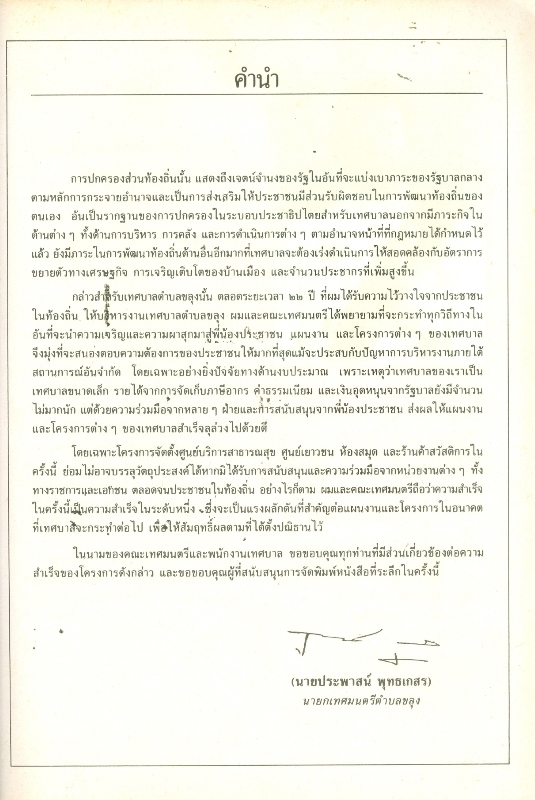 คำนำ
การปกครองส่วนท้องถิ่นนั้น แสดงถึงเจตน์จำนงของรัฐในอันที่จะแบ่งเบาภาระของรัฐบาลกลาง
ตามหลักการกระจายอำนาจและเป็นการส่งเสริมให้ประชาชนมีส่วนรับผิดชอบในการพัฒนาท้องถิ่นของ
ตนเอง อันเป็นรากฐานของการปกครองในระบอบประชาธิปไตยสำหรับเทศบาลนอกจากมีภาระกิจใน
ด้านต่าง ๆ ทั้งด้านการบริหาร การคลัง และการดำเนินการต่าง ๆ ตามอำนาจหน้าที่ที่กฎหมายได้กำหนดไว้
แล้ว ยังมีภาระในการพัฒนาท้องถิ่นด้านอื่นอีกมากที่เทศบาลจะต้องเร่งดำเนินการให้สอดคล้องกับอัตราการ
ขยายตัวทางเศรษฐกิจ การเจริญเติบโตของบ้านเมือง และจำนวนประชากรที่เพิ่มสูงขึ้น
กล่าวสำหรับเทศบาลตำบลขลุงนั้น ตลอดระยะเวลา ๒๒ ปี ที่ผมได้รับความไว้วางใจจากประชาชน
ในท้องถิ่น ให้บริหารงานเทศบาลตำบลขลุง ผมและคณะเทศมนตรีได้พยายามที่จะกระทำทุกวิถีทางใน
อันที่จะนำความเจริญและความผาสุกมาสู่พี่น้องประชาชน แผนงาน และโครงการต่าง ๆ ของเทศบาล
จึงมุ่งที่จะสนองตอบความต้องการของประชาชนให้มากที่สุดแม้จะประสบกับปัญหาการบริหารงานภายใต้
สถานการณ์อันจำกัด โดยเฉพาะอย่างยิ่งปัจจัยทางด้านงบประมาณ เพราะเหตุว่าเทศบาลของเราเป็น
เทศบาลขนาดเล็ก รายได้จากการจัดเก็บภาษีอากร ค่าธรรมเนียม และเงินอุดหนุนจากรัฐบาลยังมีจำนวน
ไม่มากนัก แต่ด้วยความร่วมมือจากหลาย ๆ ฝ่ายและการสนับสนุนจากพี่น้องประชาชน ส่งผลให้แผนงาน
และโครงการต่าง ๆ ของเทศบาลสำเร็จลุล่วงไปด้วยดี
โดยเฉพาะโครงการจัดตั้งศูนย์บริการสาธารณสุข ศูนย์เยาวชน ห้องสมุด และร้านค้าสวัสดิการใน
ครั้งนี้ ย่อมไม่อาจบรรลุวัตถุประสงค์ได้หากมิได้รับการสนับสนุนและความร่วมมือจากหน่วยงานต่าง ๆ ทั้ง
ทางราชการและเอกชน ตลอดจนประชาชนในท้องถิ่น อย่างไรก็ตาม ผมและคณะเทศมนตรีถือว่าความสำเร็จ
ในครั้งนี้เป็นความสำเร็จในระดับหนึ่ง ซึ่งจะเป็นแรงผลักดันที่สำคัญต่อแผนงานและโครงการในอนาคต
ที่เทศบาลจะกระทำต่อไป เพื่อให้สัมฤทธิ์ผลตามที่ได้ตั้งปณิธานไว้
ในนามของคณะเทศมนตรีและพนักงานเทศบาล ขอขอบคุณทุกท่านที่มีส่วนเกี่ยวข้องต่อความ
สำเร็จของโครงการดังกล่าว และขอขอบคุณผู้ที่สนับสนุนการจัดพิมพ์หนังสือที่ระลึกในครั้งนี้
(นายประพาสน์ พุทธเกสร)
นายกเทศมนตรีตำบลขลุง